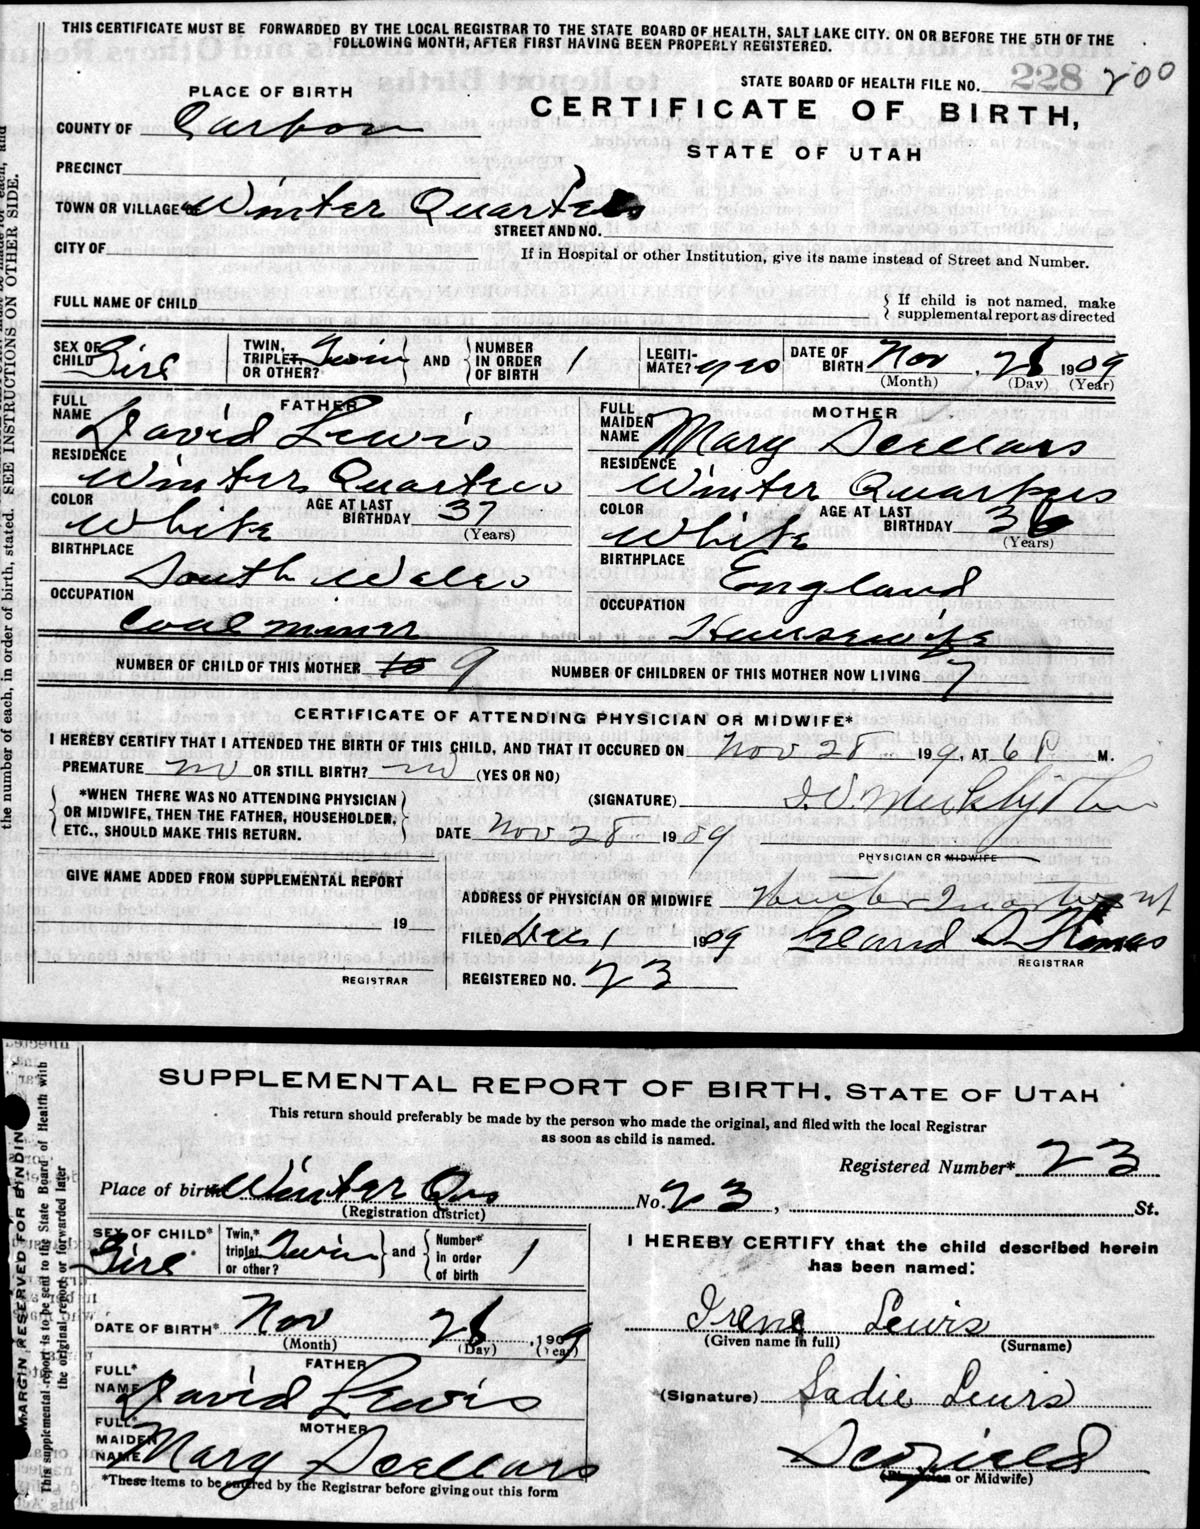 THIS CERTIFICATE MUST BE FORWARDED BY THE LOCAL REGISTRAR TO THE STATE BOARD OF HEALTH, SALT LAKE CITY. ON OR BEFORE THE 5TH OF THE
FOLLOWING MONTH, AFTER FIRST HAVING BEEN PROPERLY REGISTERED.
STATE BOARD OF HEALTH FILE NO. 228 200
PLACE OF BIRTH
CERTIFICATE OF BIRTH,
COUNTY OF Carbon
STATE OF UTAH
PRECINCT
TOWN OR VILLAGE OF Winter Quarters
STREET AND NO.
CITY OF
If in Hospital or other Institution, give its name instead of Street and Number.
FULL NAME OF CHILD
{ If child is not named, make
supplemental report as directed
SEX OF CHILD Girl
TWIN, TRIPLET, OR OTHER? Twin AND
NUMBER IN ORDER OF BIRTH 1
LEGITI-MATE? yes
DATE OF BIRTH Nov, 28 1909
(Month) (Day) (Year)
FATHER
FULL NAME David Lewis
RESIDENCE Winters Quarters
COLOR White
AGE AT LAST BIRTHDAY 37
(Years)
BIRTHPLACE South Wales
OCCUPATION Coal miner
MOTHER
FULL MAIDEN NAME Mary
RESIDENCE Winter Quarters
COLOR White
AGE AT LAST BIRTHDAY 36
(Years)
BIRTHPLACE England
OCCUPATION Housewife
NUMBER OF CHILD OF THIS MOTHER 9
NUMBER OF CHILDREN OF THIS MOTHER NOW LIVING 7
CERTIFICATE OF ATTENDING PHYSICIAN OR MIDWIFE*
I HEREBY CERTIFY THAT I ATTENDED THE BIRTH OF THIS CHILD, AND THAT IT OCCURED ON Nov 28 199, AT 6 P M.
PREMATURE no OR STILL BIRTH? no (YES OR NO)
*WHEN THERE WAS NO ATTENDING PHYSICIAN
OR MIDWIFE, THEN THE FATHER, HOUSEHOLDER,
ETC., SHOULD MAKE THIS RETURN.
(SIGNATURE)
DATE Nov 28 1909
PHYSICIAN OR MIDWIFE
GIVE NAME ADDED FROM SUPPLEMENTAL REPORT
19
REGISTRAR
ADDRESS OF PHYSICIAN OR MIDWIFE Winter Quarters Ut
FILED Dec 1 1909 Thomas
REGISTRAR
REGISTERED NO. 23
the number of each, in order of birth, stated. SEE INSTRUCTIONS ON OTHER SIDE.
SUPPLEMENTAL REPORT OF BIRTH, STATE OF UTAH
This return should preferably be made by the person who made the original, and filed with the local Registrar
as soon as child is named.
Registered Number* 23
Place of birth Winter Qrs No. 23, St.
(Registration district)
SEX OF CHILD* Girl
Twin,* triplet, or other? Twin and
Number* in order of birth 1
DATE OF BIRTH* Nov 28, 1909
(Month) (Day) (Year)
FATHER
FULL* NAME David Lewis
MOTHER
FULL* MAIDEN NAME Mary
*These items to be entered by the Registrar before giving out this form
I HEREBY CERTIFY that the child described herein
has been named:
Irene Lewis
(Given name in full) (Surname)
(Signature) Sadie Lewis
Scofield
(Physician or Midwife)
MARGIN RESERVED FOR BINDING
This supplemental report is to be sent to the State Board of Health with
the original report or forwarded later